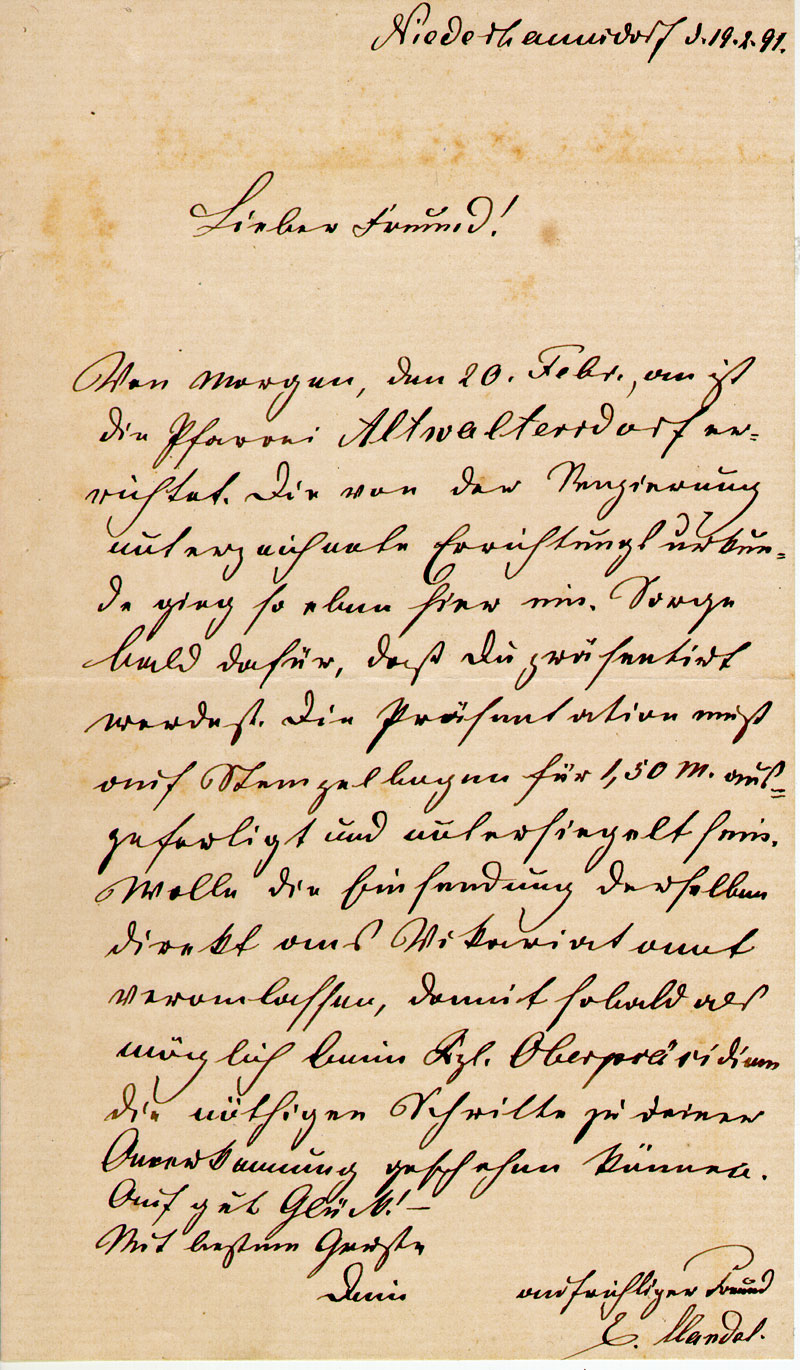 Niederhannsdorf d. 19.2.91.
Lieber Freund!
Von morgen, den 20. Febr., an ist
die Pfarrei Altwaltersdorf er=
richtet. Die von der Regierung
unterzeichnete Errichtungsurkun=
de ging so eben hier ein. Sorge
bald dafür, daß Du präsentirt
werdest. Die Präsentation muß
auf Stempelbogen für 1,50 M. aus=
gefertigt und untersiegelt sein.
Wolle die Einsendung derselben
direkt ans Vikariatamt
veranlassen, damit sobald als
möglich beim Kgl. Oberpräsidium
die nöthigen Schritte zu deiner
Anerkennung geschehen können.
Auf gut Glück! —
Mit bestem Gruße
Dein aufrichtiger Freund
E. Mandel.